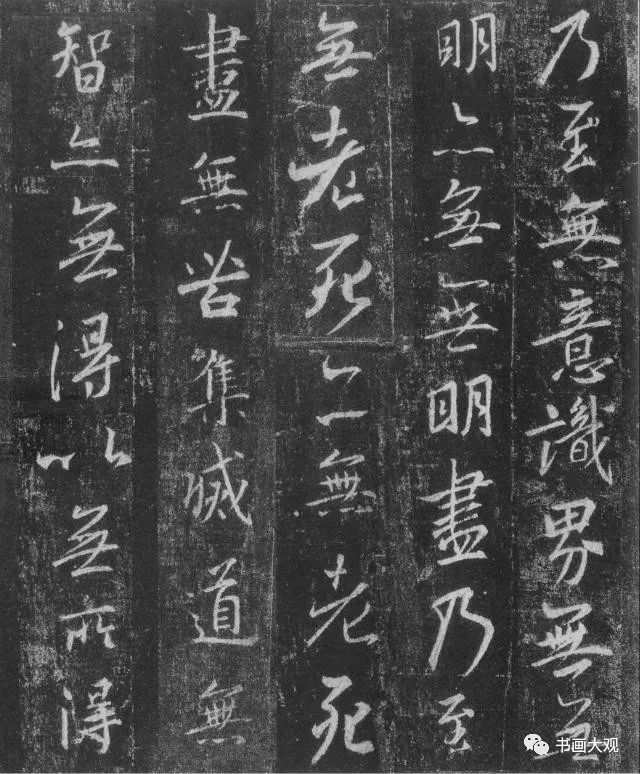 乃至無意識界無無
明亦無無明盡乃至
無老死亦無老死
盡無苦集滅道無
智亦無得以無所得
书画大观